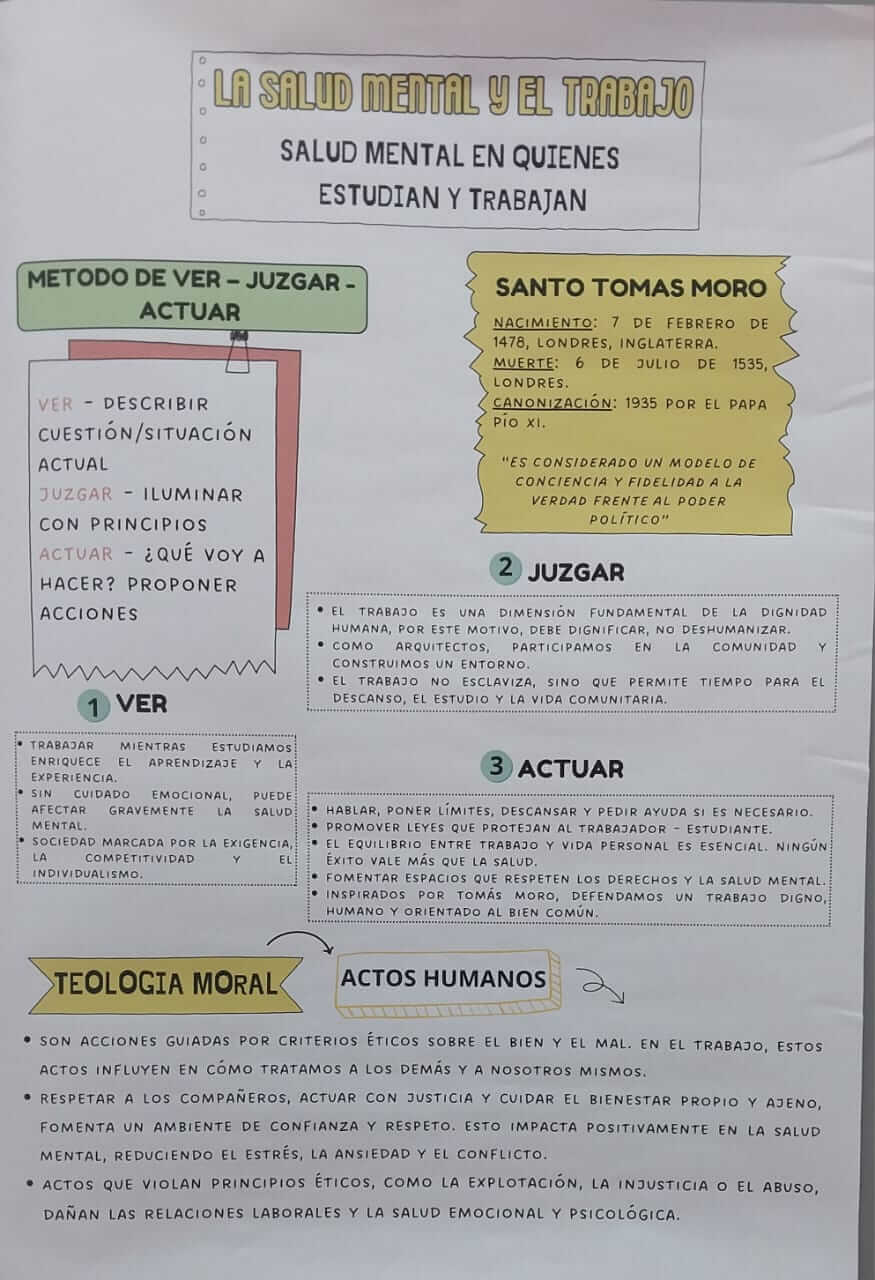 LA SALUD MENTAL Y EL TRABAJO
SALUD MENTAL EN QUIENES
ESTUDIAN Y TRABAJAN
METODO DE VER – JUZGAR -
ACTUAR
VER - DESCRIBIR
CUESTIÓN/SITUACIÓN
ACTUAL
JUZGAR - ILUMINAR
CON PRINCIPIOS
ACTUAR - ¿QUÉ VOY A
HACER? PROPONER
ACCIONES
SANTO TOMAS MORO
NACIMIENTO: 7 DE FEBRERO DE
1478, LONDRES, INGLATERRA.
MUERTE: 6 DE JULIO DE 1535,
LONDRES.
CANONIZACIÓN: 1935 POR EL PAPA
PÍO XI.
"ES CONSIDERADO UN MODELO DE
CONCIENCIA Y FIDELIDAD A LA
VERDAD FRENTE AL PODER
POLÍTICO"
1 VER
• TRABAJAR MIENTRAS ESTUDIAMOS
ENRIQUECE EL APRENDIZAJE Y LA
EXPERIENCIA.
• SIN CUIDADO EMOCIONAL, PUEDE
AFECTAR GRAVEMENTE LA SALUD
MENTAL.
• SOCIEDAD MARCADA POR LA EXIGENCIA,
LA COMPETITIVIDAD Y EL
INDIVIDUALISMO.
2 JUZGAR
• EL TRABAJO ES UNA DIMENSIÓN FUNDAMENTAL DE LA DIGNIDAD
HUMANA, POR ESTE MOTIVO, DEBE DIGNIFICAR, NO DESHUMANIZAR.
• COMO ARQUITECTOS, PARTICIPAMOS EN LA COMUNIDAD Y
CONSTRUIMOS UN ENTORNO.
• EL TRABAJO NO ESCLAVIZA, SINO QUE PERMITE TIEMPO PARA EL
DESCANSO, EL ESTUDIO Y LA VIDA COMUNITARIA.
3 ACTUAR
• HABLAR, PONER LÍMITES, DESCANSAR Y PEDIR AYUDA SI ES NECESARIO.
• PROMOVER LEYES QUE PROTEJAN AL TRABAJADOR – ESTUDIANTE.
• EL EQUILIBRIO ENTRE TRABAJO Y VIDA PERSONAL ES ESENCIAL. NINGÚN
ÉXITO VALE MÁS QUE LA SALUD.
• FOMENTAR ESPACIOS QUE RESPETEN LOS DERECHOS Y LA SALUD MENTAL.
• INSPIRADOS POR TOMÁS MORO, DEFENDAMOS UN TRABAJO DIGNO,
HUMANO Y ORIENTADO AL BIEN COMÚN.
TEOLOGIA MORAL
ACTOS HUMANOS
• SON ACCIONES GUIADAS POR CRITERIOS ÉTICOS SOBRE EL BIEN Y EL MAL. EN EL TRABAJO, ESTOS
ACTOS INFLUYEN EN CÓMO TRATAMOS A LOS DEMÁS Y A NOSOTROS MISMOS.
• RESPETAR A LOS COMPAÑEROS, ACTUAR CON JUSTICIA Y CUIDAR EL BIENESTAR PROPIO Y AJENO,
FOMENTA UN AMBIENTE DE CONFIANZA Y RESPETO. ESTO IMPACTA POSITIVAMENTE EN LA SALUD
MENTAL, REDUCIENDO EL ESTRÉS, LA ANSIEDAD Y EL CONFLICTO.
• ACTOS QUE VIOLAN PRINCIPIOS ÉTICOS, COMO LA EXPLOTACIÓN, LA INJUSTICIA O EL ABUSO,
DAÑAN LAS RELACIONES LABORALES Y LA SALUD EMOCIONAL Y PSICOLÓGICA.